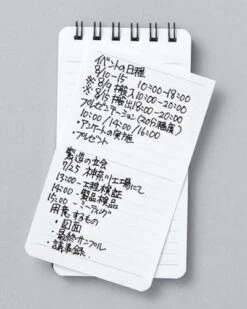 イベントの日程
8/10-15 10:00-18:00
※8/9 搬入 10:00-20:00
※8/15 搬出 18:00-20:00
プレゼンテーション(20分程度)
10:00/14:00/16:00
・アンケートの実施
・プレゼント
製造の立会
7/25 神奈川工場にて
13:00-工程検証
14:00-製品検品
15:00-ミーティング
用意するもの
・図面
・最終サンプル
・議事録